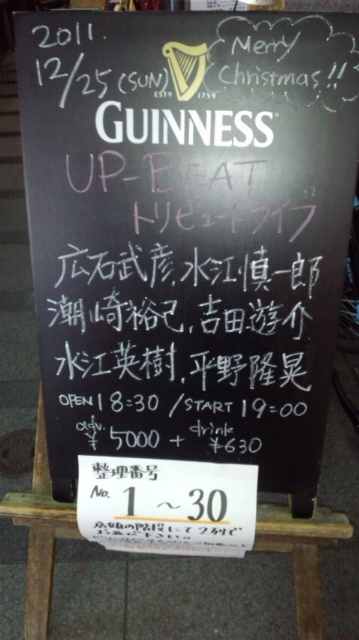 2011.
12/25(SUN)
Merry
Christmas!!
ESTD 1759
GUINNESS
UP-BEAT
トリビュートライブ
広石武彦,水江慎一郎
潮崎裕己,吉田遊介
水江英樹,平野隆晃
OPEN 18:30 / START 19:00
adv. ¥5000 + drink ¥630
整理番号
No. 1～30
の階段にて2列で
下さい。